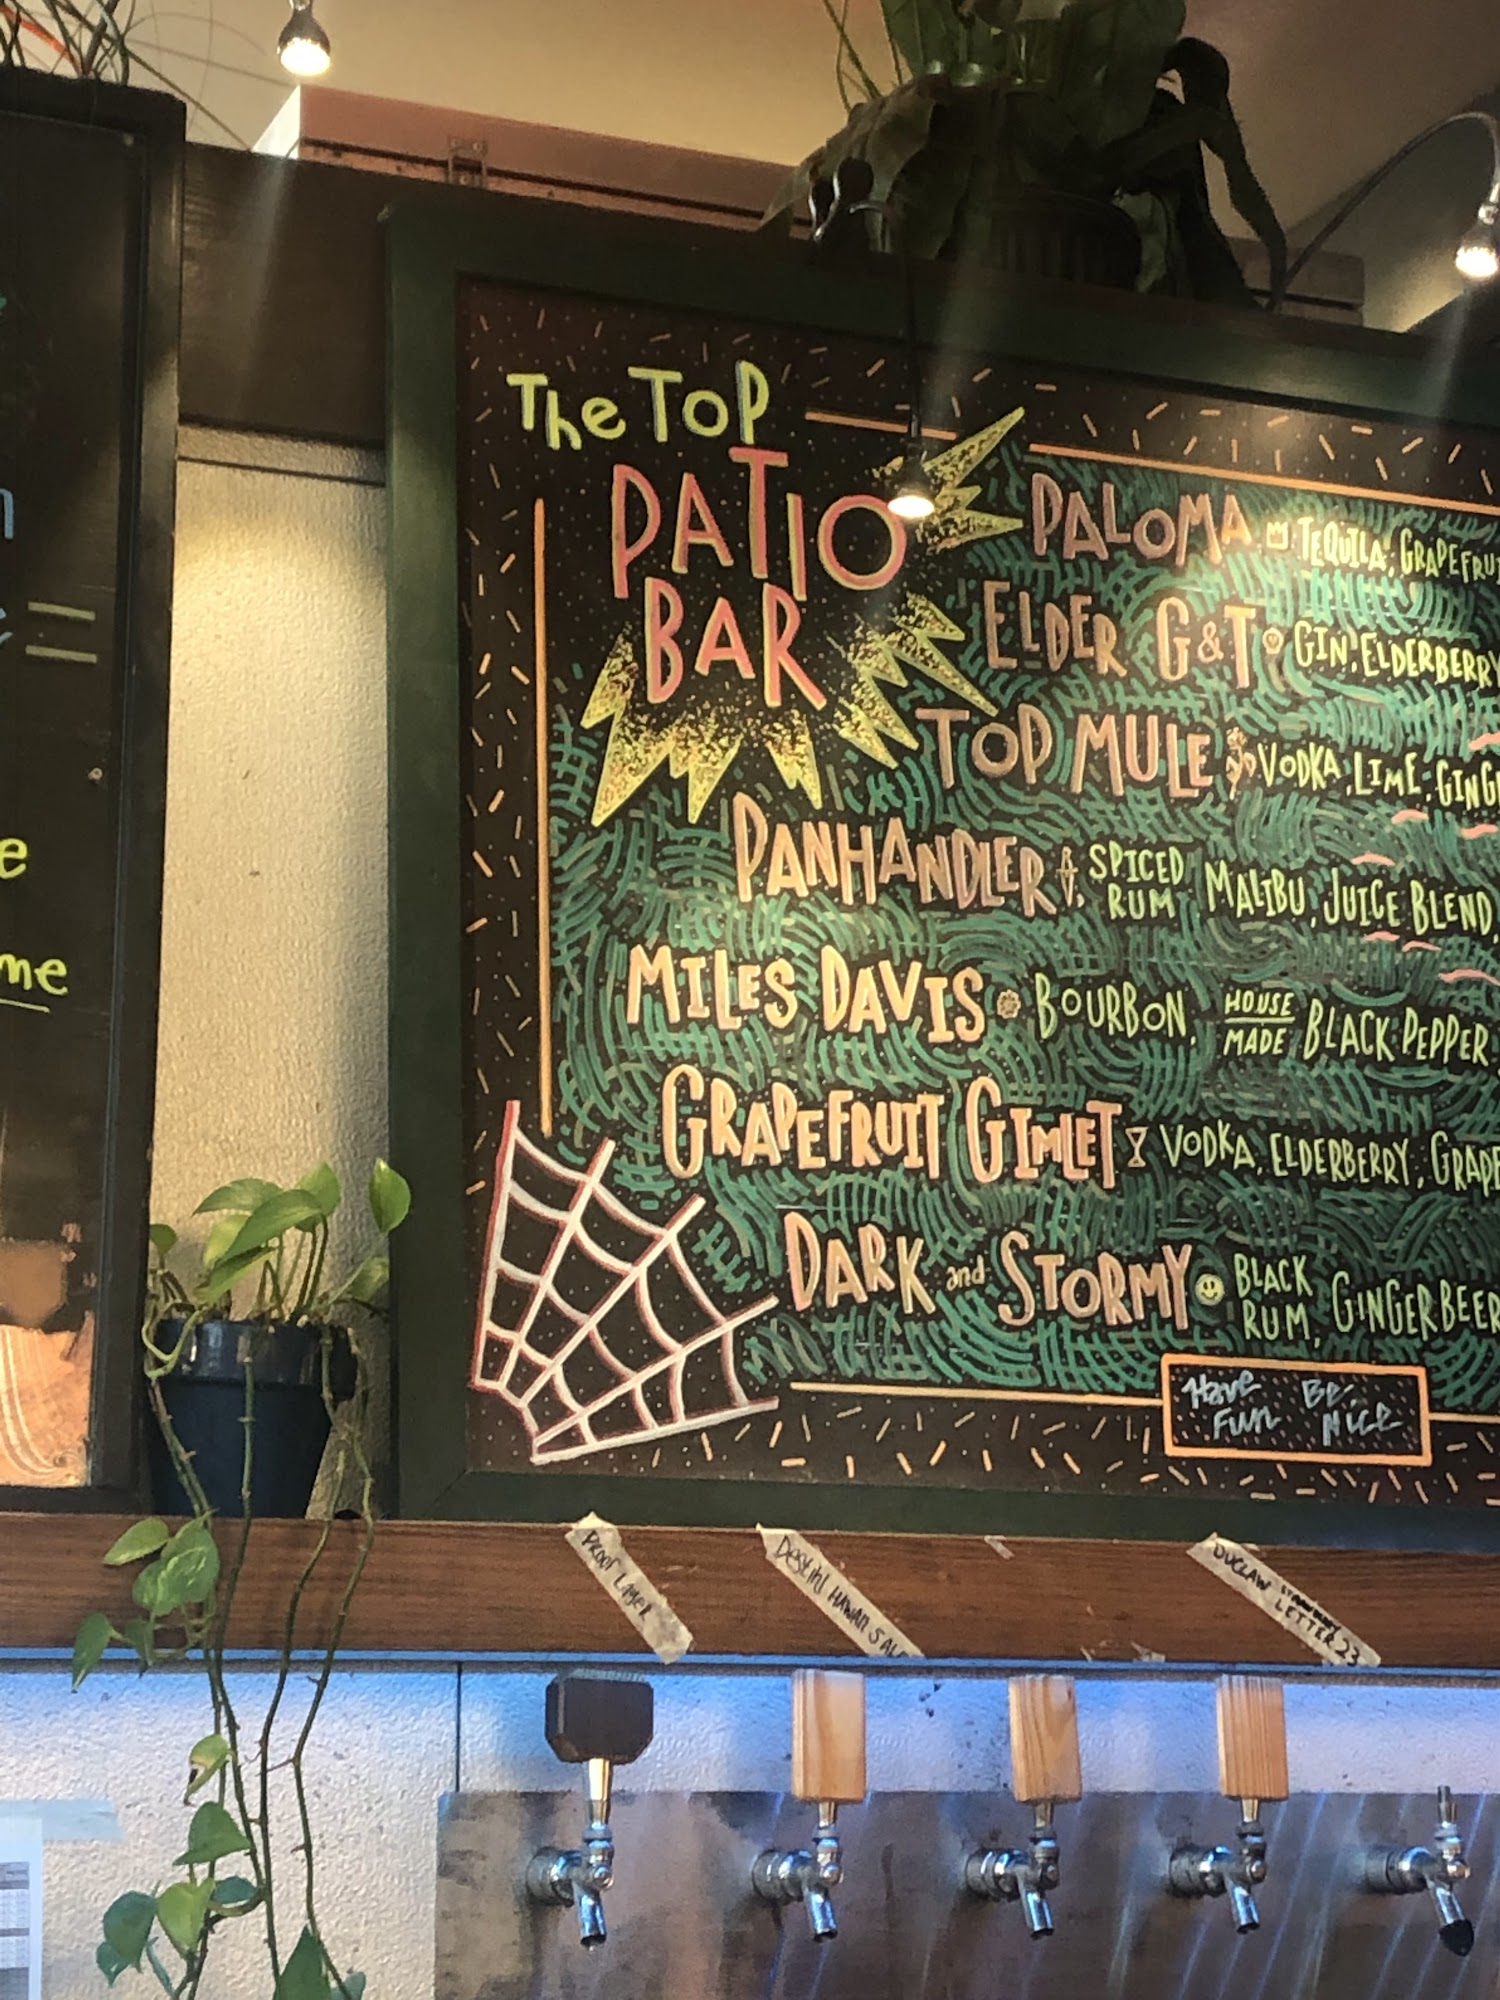 The Top
PATIO
BAR
PALOMA TEQUILA, GRAPEFRUI
ELDER G&T GIN, ELDERBERRY
TOP MULE VODKA, LIME, GING
PANHANDLER SPICED RUM, MALIBU, JUICE BLEND,
MILES DAVIS BOURBON, HOUSE MADE BLACK PEPPER
GRAPEFRUIT GIMLET VODKA, ELDERBERRY, GRAPE
DARK and STORMY BLACK RUM, GINGER BEER
Have Fun Be Nice
e
me
Proof Lager
Destihl Hawaii
DUCLAW
LETTER 23